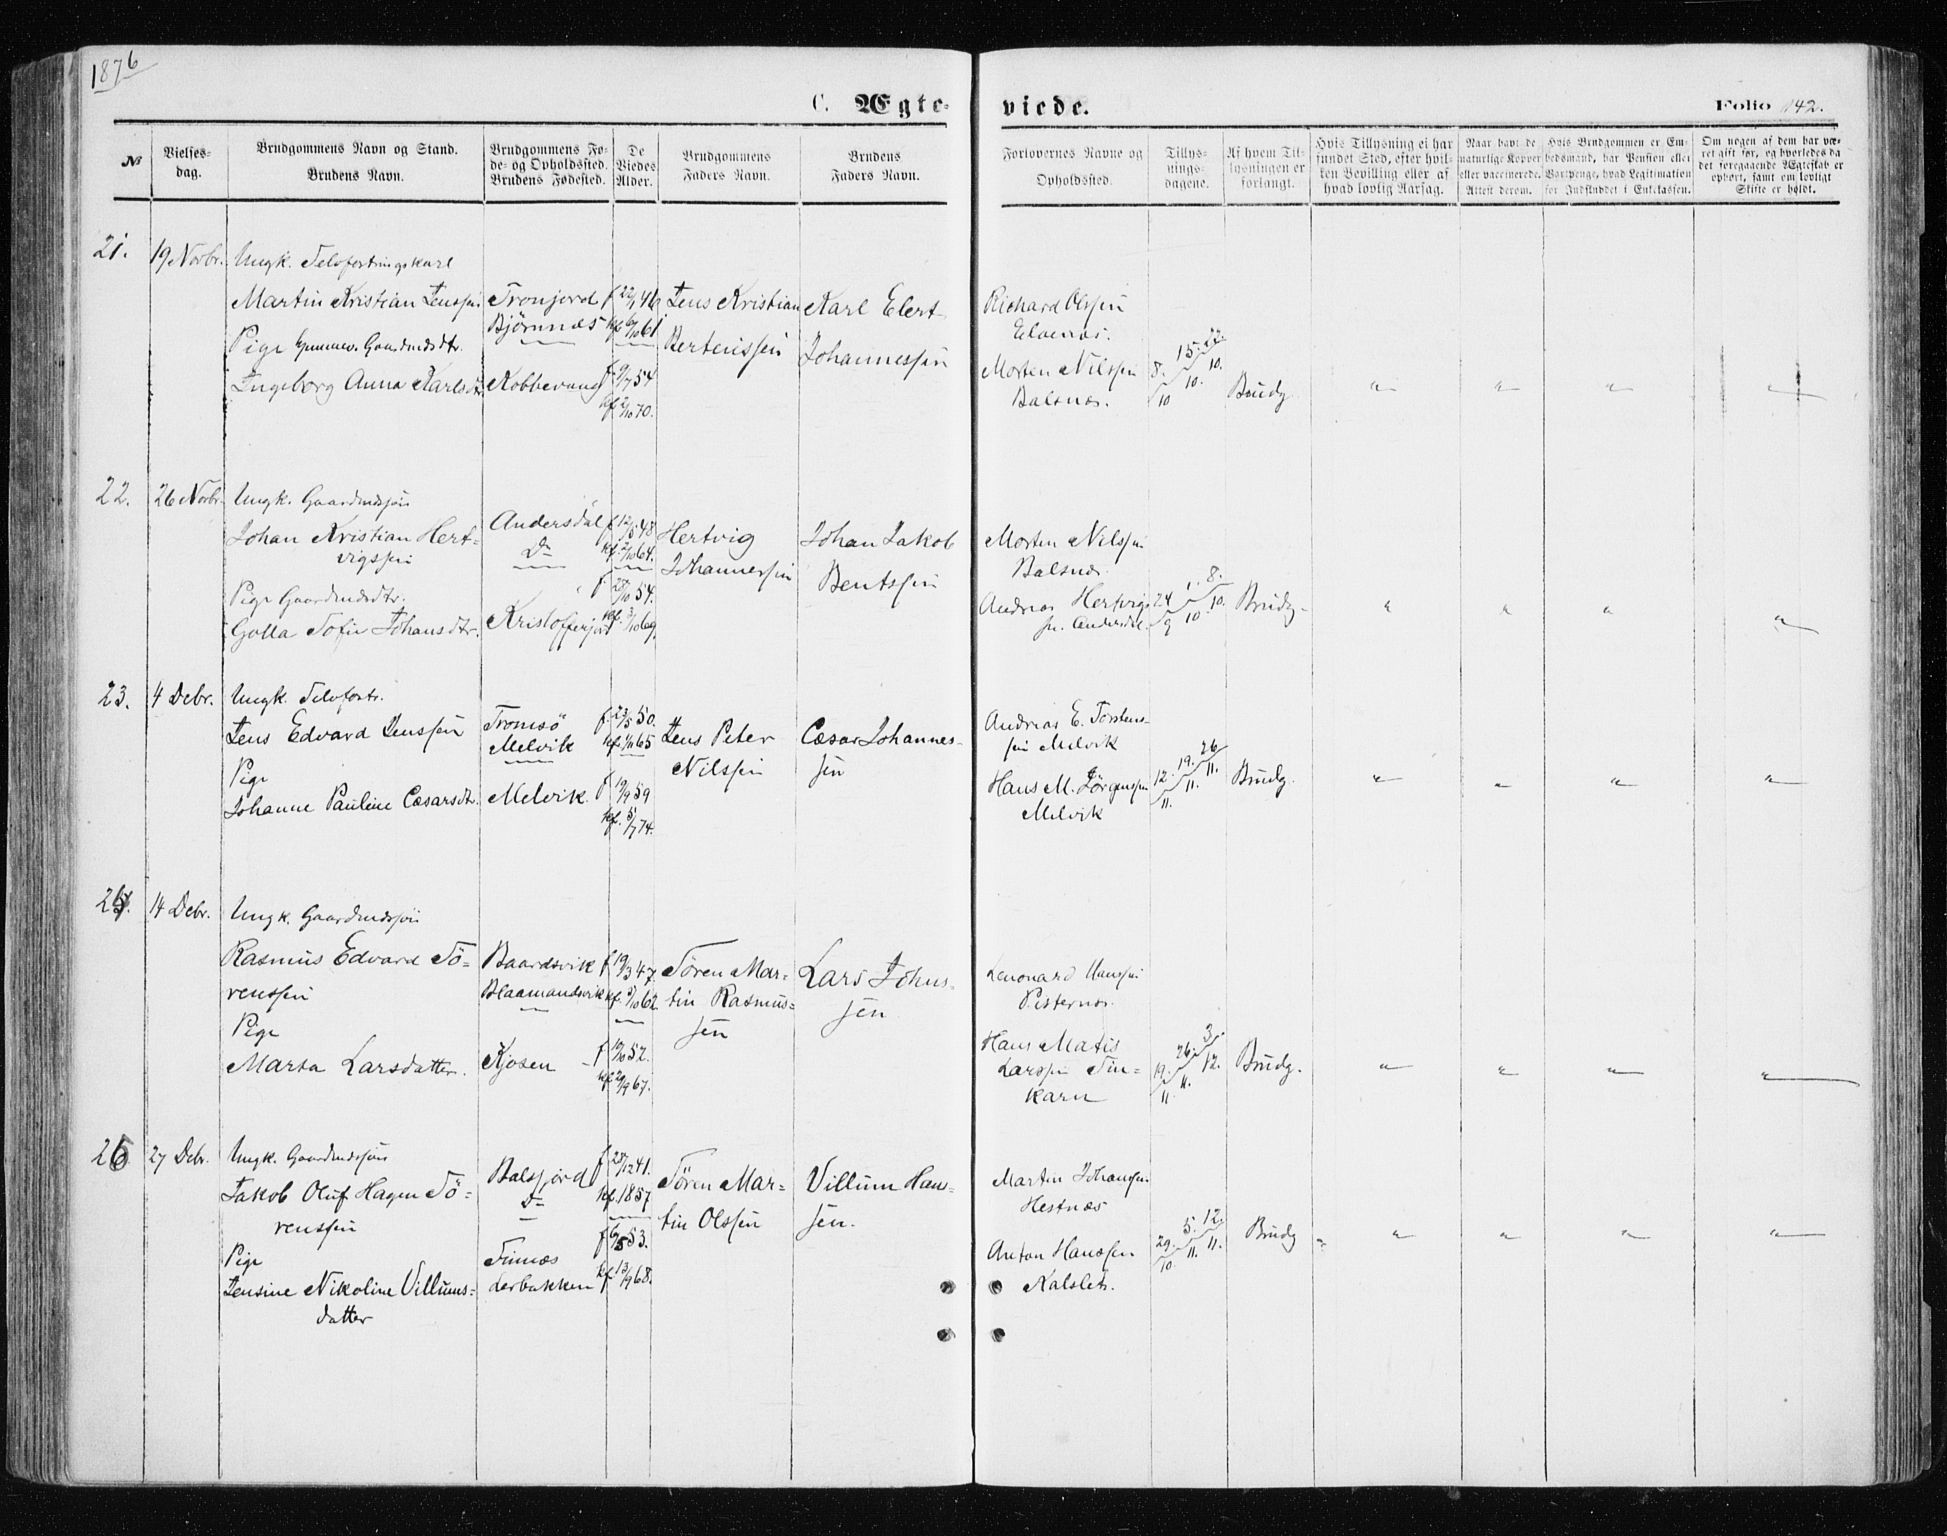 1876
C. Ægteviede.
Folio 142.
№
Vielsesdag.
Brudgommens Navn og Stand.
Brudens Navn.
Brudgommens Føde- og Opholdssted.
Brudens Fødested.
De Viedes Alder.
Brudgommens Faders Navn.
Brudens Faders Navn.
Forlovernes Navne og Opholdssted.
Tillysningsdagene.
Af hvem Tillysningen er forlangt.
Hvis Tillysning ei har fundet Sted, efter hvilken Bevilling eller af hvad lovlig Aarsag.
Naar havt de naturlige Kopper eller vaccinerede. Attest derom.
Hvis Brudgommen er Embedsmand, har Pension eller Vartpenge, hvad Legitimation for Indskuddet i Enkekassen.
Om nogen af dem har været gift før, og hvorledes da det foregaaende Ægteskab er ophørt, samt om lovligt Skifte er holdt.
21. 19 Novbr.
Ungk.
Martin Kristian Jenssen
Pige Gaardmdsdtr.
Ingeborg Anna Karlsdtr.
Tronjord
Bjørnnæs
Kobbevaag
f 22/1 46
kf. 6/10 61
f. 9/7 54
kf. 2/10 70.
Jens Kristian
Berteussen
Karl Elert
Johannessen
Richard Olssen
Morten Nilssen
Balsnes.
8./10 15./10. 22./10.
Brudg.
" " " "
22. 26 Novbr.
Ungk. Gaardmdssøn
Johan Kristian Hert=
vigssen
Pige Gaardmdsdtr.
Golla Sofie Johansdtr.
Andersdal
Do
Kristofferjord
f 12/5 48
kf. 2/10 64.
f. 28/10 54.
kf. 3/10 69.
Hertvig
Johannessen
Johan Jakob
Bentssen
Morten Nilssen
Balsnes
Andreas Hertvigs
sn. Andersdal.
24/9 1./10. 8./10.
Brudg.
" " " "
23. 4 Debr.
Ungk.
Jens Edvard Jenssen
Pige
Johanne Pauline Cæsarsdtr.
Tromsö
Melvik
Melvik.
f. 23/5 50.
kf. 1/11 65
f 19/9 59
kf. 5/7 74.
Jens Peter
Nilssen
Cæsar Johannes-
sen
Andreas E. Torstens-
sen Melvik
Hans M. Jörgenssen
Melvik
12./11. 19./11. 26/11.
Brudg.
" " " "
24. 14 Debr.
Ungk. Gaardmdssøn
Rasmus Edvard Sö=
renssen
Pige
Marta Larsdatter.
Baardsvik
Blaamandsvik
Kjosen
f 19/3 47.
kf. 5/10 62.
f 19/10 52.
kf 29/9 67.
Sören Mar=
tin Rasmus=
sen
Lars Johns-
sen
Leonard Hanssen
Hans Matis
Larssen Sin=
karn
19./11. 26./11. 3./12.
Brudg.
" " " "
25 27 Debr.
Ungk. Gaardmdssøn
Jakob Oluf Hagen Sö=
renssen
Pige
Jensine Nikoline Villums=
datter
Balsfjord
Do
Finnæs
Lerbakken
f 28/12 41.
kf. 1857.
f 6/5 53.
kf 13/9 68.
Sören Mar=
tin Olssen
Villum Han-
sen.
Martin Johansen
Hestnæs
Anton Hanssen
Kalslet.
29./10. 5./11. 12./11.
Brudg
" " " "